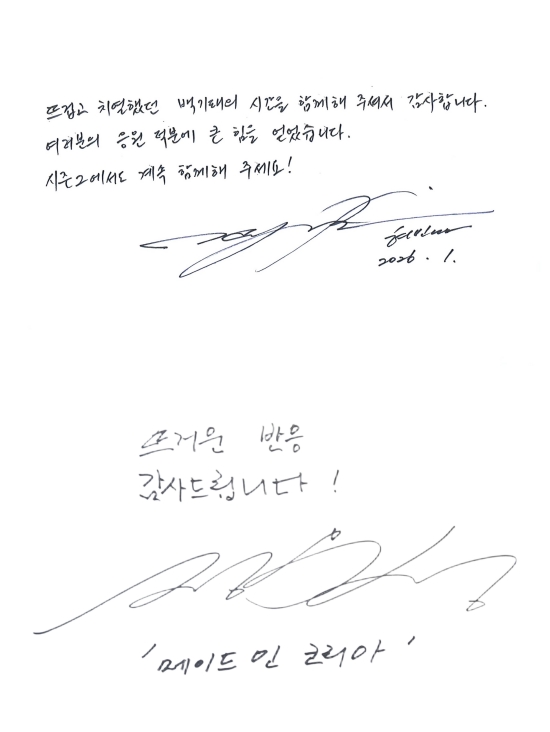 뜨겁고 치열했던 백기태의 시간을 함께해 주셔서 감사합니다.
여러분의 응원 덕분에 큰 힘을 얻었습니다.
시즌2에서도 계속 함께해 주세요!
현빈
2026. 1.
뜨거운 반응
감사드립니다!
'메이드 인 코리아'